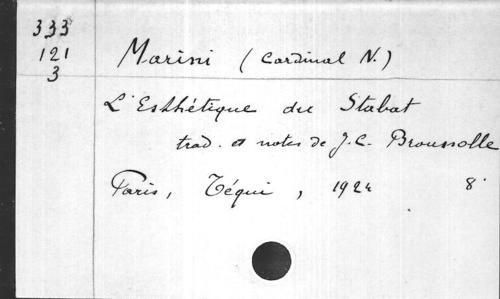 333
121
3
Marini (Cardinal N.)
L'Esthétique du Stabat
trad. et notes de J.C. Broussolle
Paris, Téqui, 1924 8°